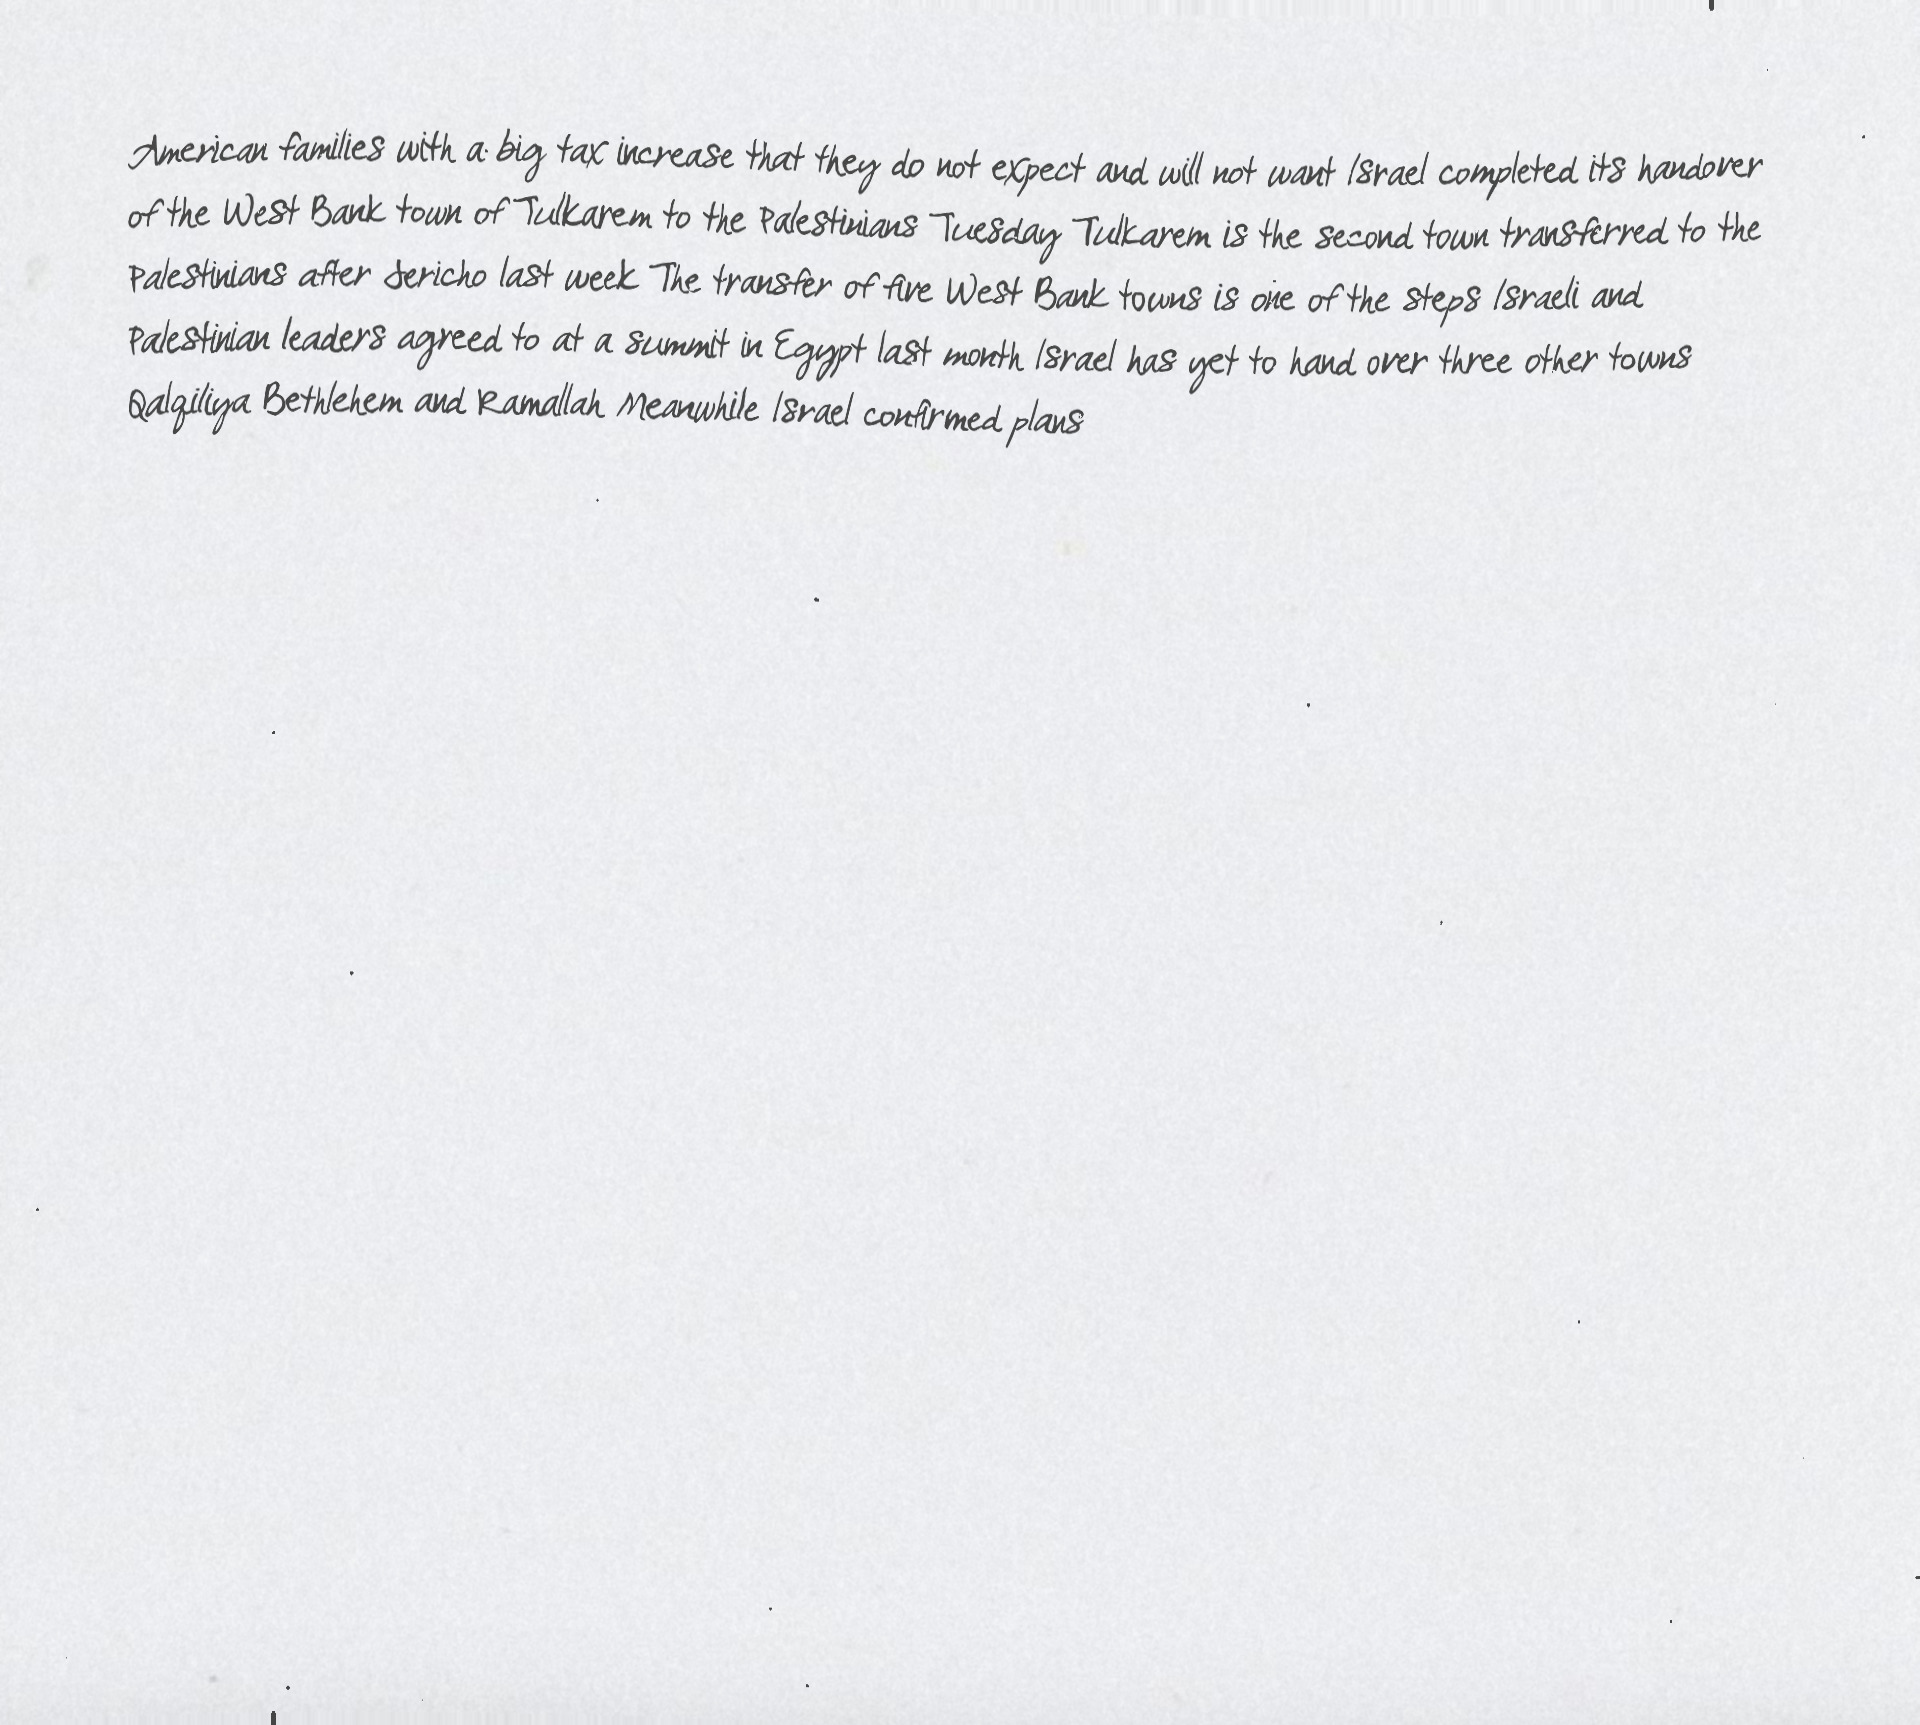 American families with a big tax increase that they do not expect and will not want Israel completed its handover
of the West Bank town of Tulkarem to the Palestinians Tuesday Tulkarem is the second town transferred to the
Palestinians after Jericho last week The transfer of five West Bank towns is one of the steps Israeli and
Palestinian leaders agreed to at a summit in Egypt last month Israel has yet to hand over three other towns
Qalqiliya Bethlehem and Ramallah Meanwhile Israel confirmed plans